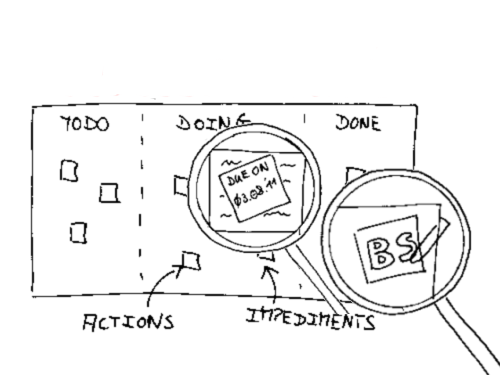 TODO
DOING
DONE
DUE ON
03.08.11
BS
ACTIONS
IMPEDIMENTS